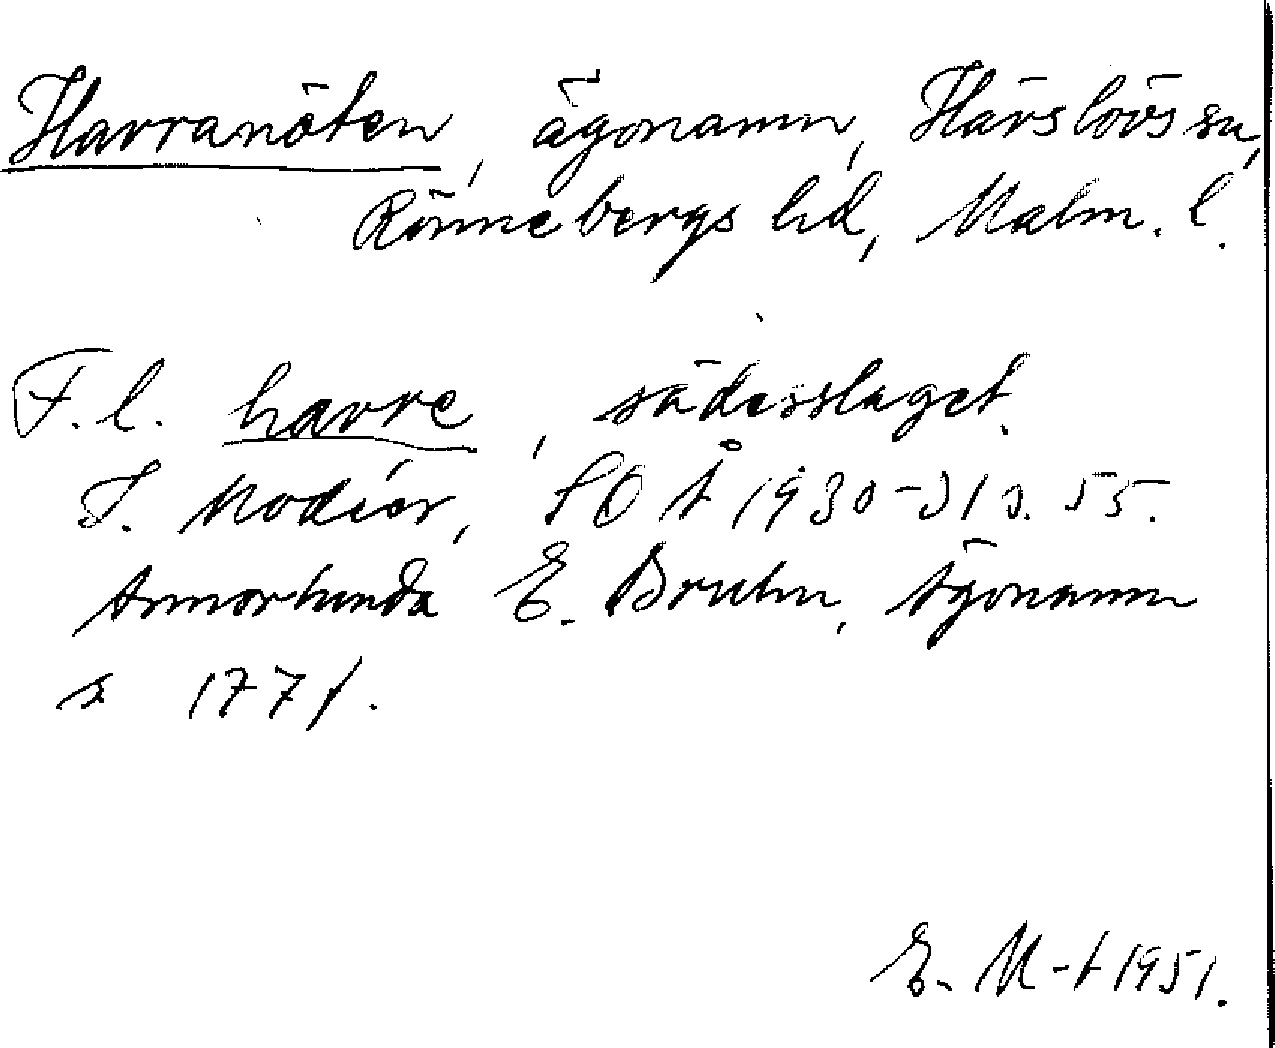 Havranöten, ägonamn, Härslövs sn,
Rönnebergs hd, Malm. l.
F. l. havre, sädesslaget.
I. Modéer, SOÅ 1930-31 s. 55.
Annorlunda E. Bruhn, Ägonamn
s 177 f.
E. M-t 1951.